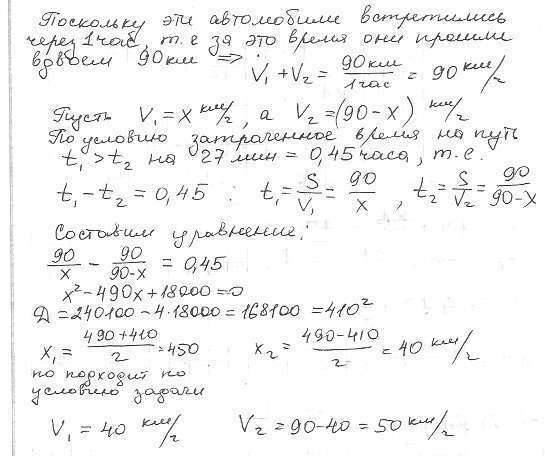 Поскольку эти автомобили встретились
через 1 час, т.е за это время они прошли
вдвоем 90 км ⇒ V₁ + V₂ = 90 км / 1 час = 90 км/г
Пусть V₁ = x км/г, а V₂ = (90 - x) км/г
По условию затраченное время на путь
t₁ > t₂ на 27 мин = 0,45 часа, т.е.
t₁ - t₂ = 0,45 : t₁ = S/V₁ = 90/x , t₂ = S/V₂ = 90/90-x
Составим уравнение:
90/x - 90/90-x = 0,45
x² - 490x + 18000 = 0
Д = 240100 - 4·18000 = 168100 = 410²
x₁ = 490+410/2 = 450 x₂ = 490-410/2 = 40 км/г
по подходит по
условию задачи
V₁ = 40 км/г V₂ = 90-40 = 50 км/г